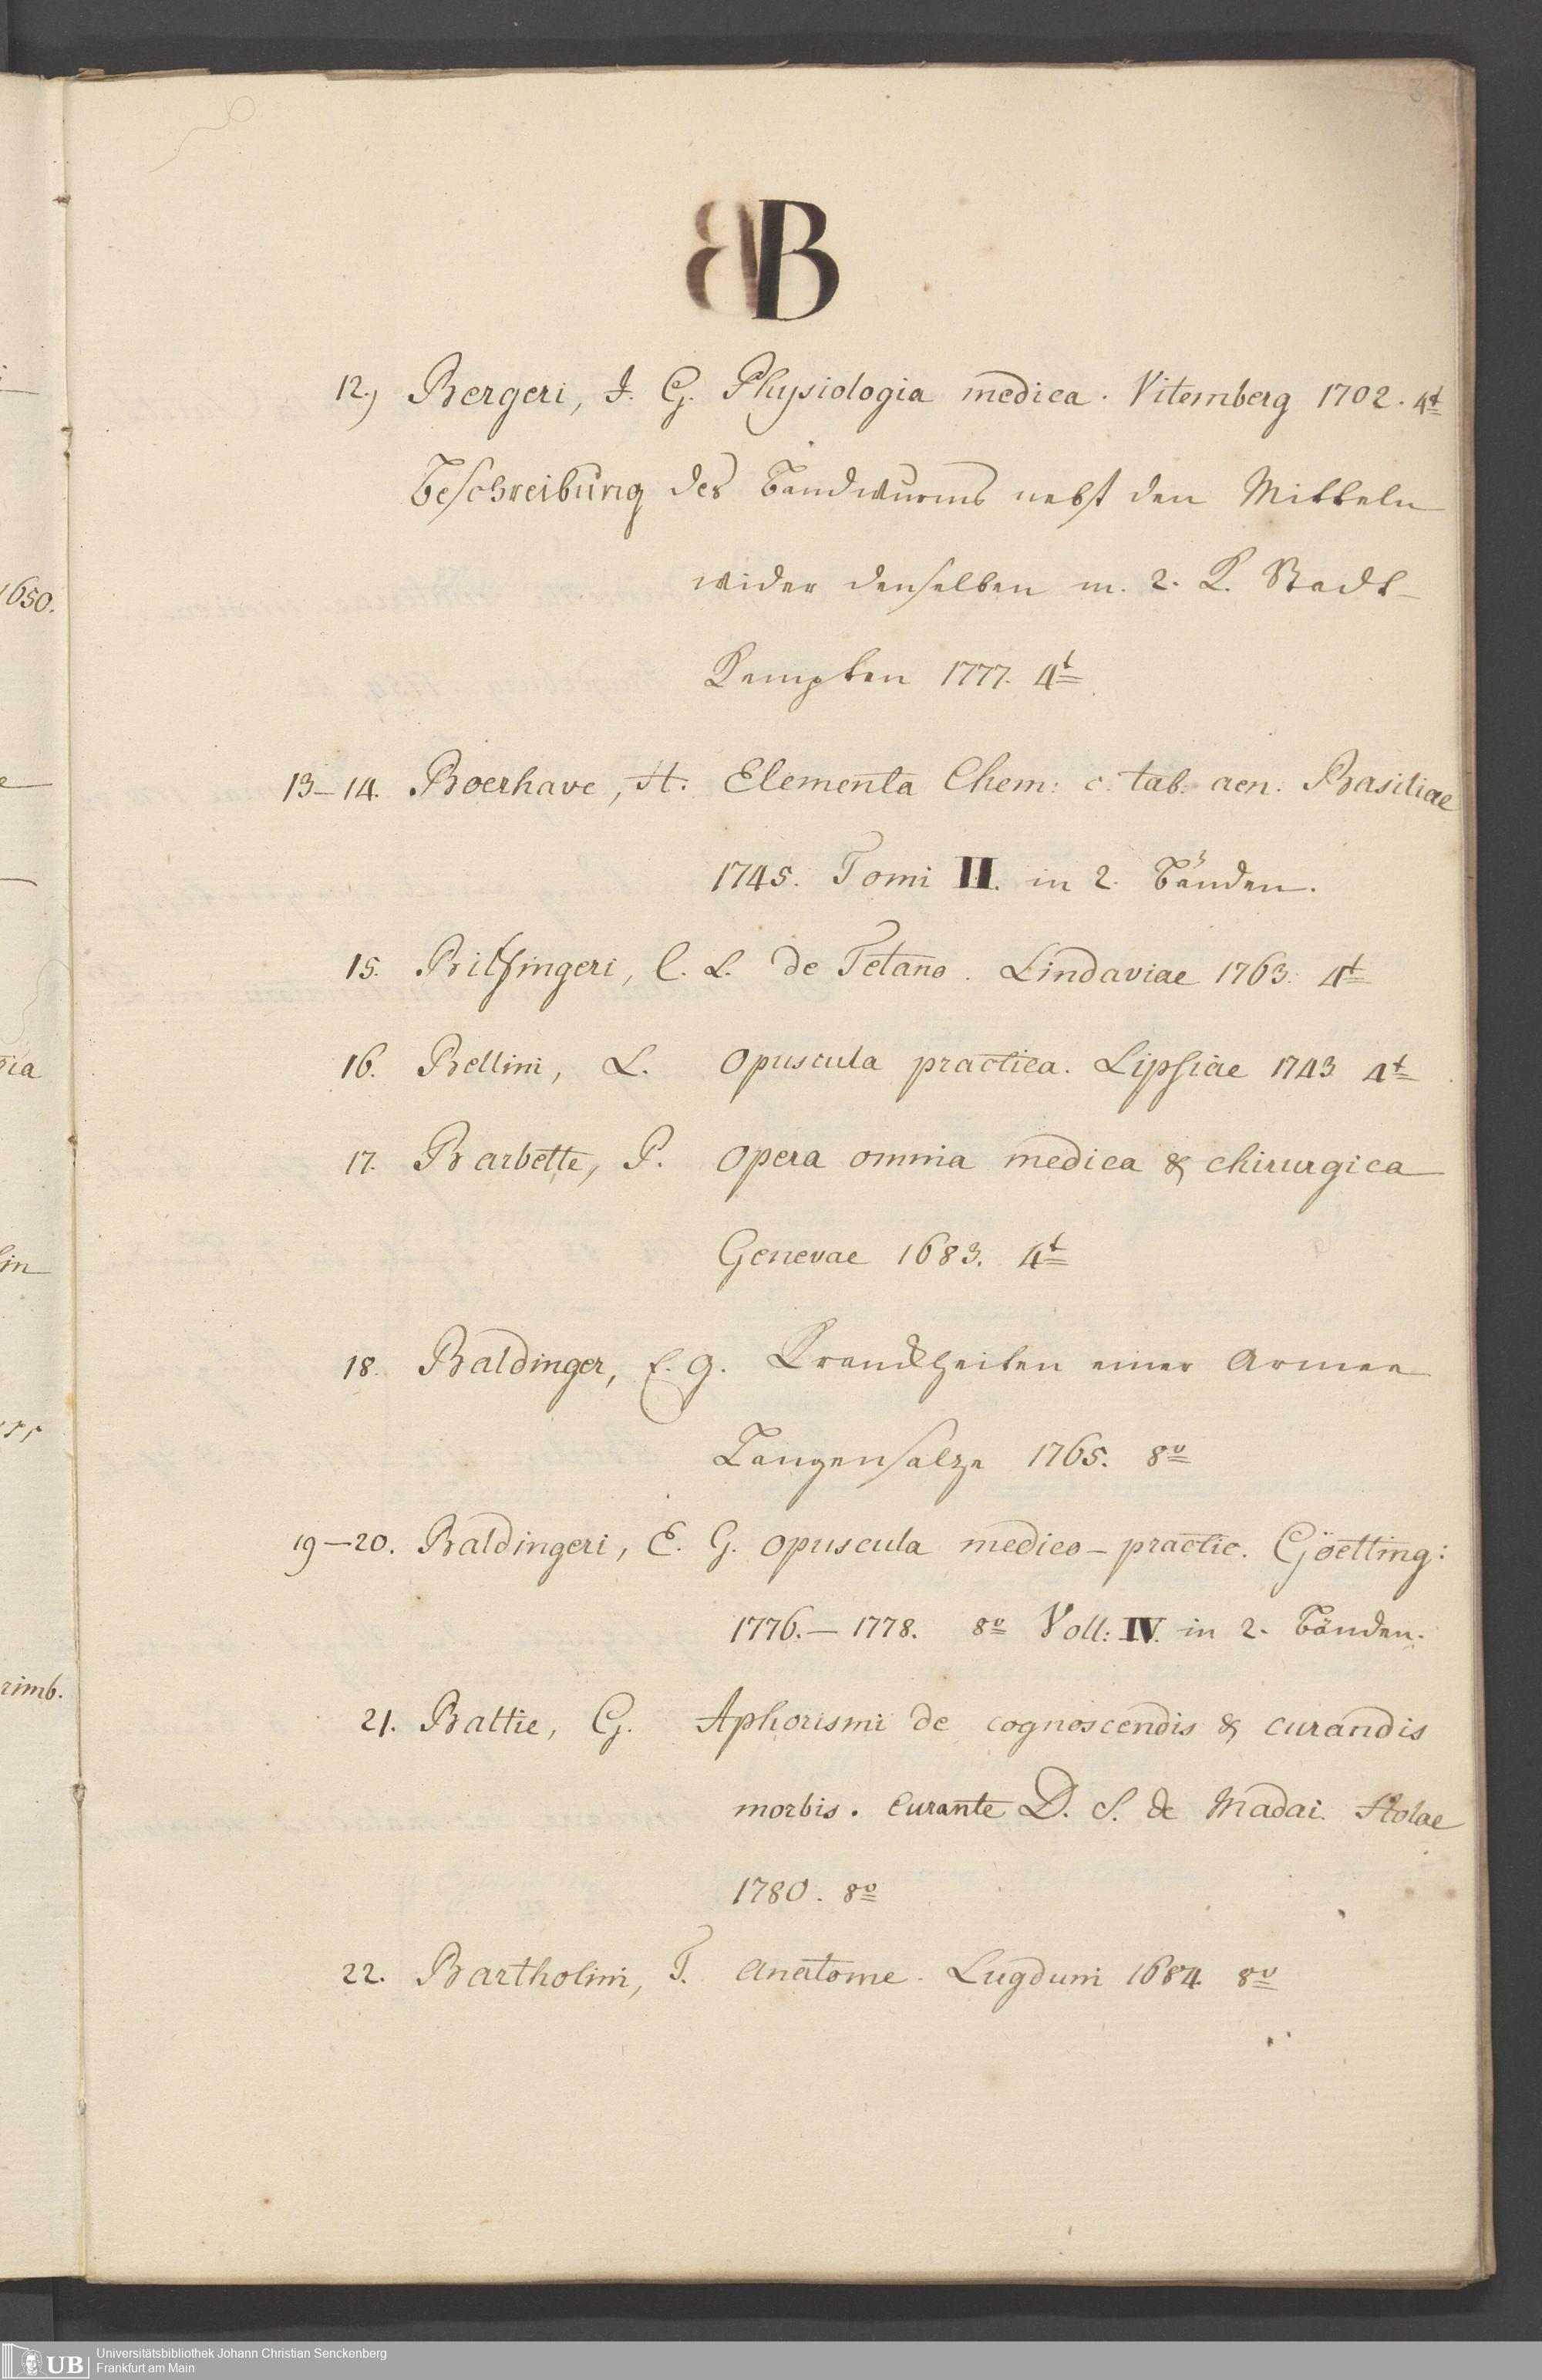 B
12.) Bergeri, J. G. Physiologia medica. Vitemberg 1702. 4t
Beschreibung des Bandwurms nebst den Mitteln
wider denselben m. 2. K. Stadt-
Kempten 1777. 4t
13–14. Boerhave, H. Elementa Chem: c. tab: aen. Basiliae
1745. Tomi II. in 2. Bänden.
15. Bilfingeri, C. L. de Tetano. Lindaviae 1763. 4t
16. Bellini, L. Opuscula practica. Lipsiae 1743 4t
17. Barbette, P. Opera omnia medica & chirurgica
Genevae 1683. 4t
18. Baldinger, E. G. Krankheiten einer Armee
Langensalza 1765. 8o
19–20. Baldingeri, E. G. opuscula medico-practic. Göetting:
1776.–1778. 8o Voll: IV. in 2. Bänden.
21. Battie, G. Aphorismi de cognoscendis & curandis
morbis. Curante D. S. de Madai. Halae
1780. 8o
22. Bartholini, T. Anatome. Lugduni 1684. 8o
1650.
rimb.
UB Universitätsbibliothek Johann Christian Senckenberg
Frankfurt am Main